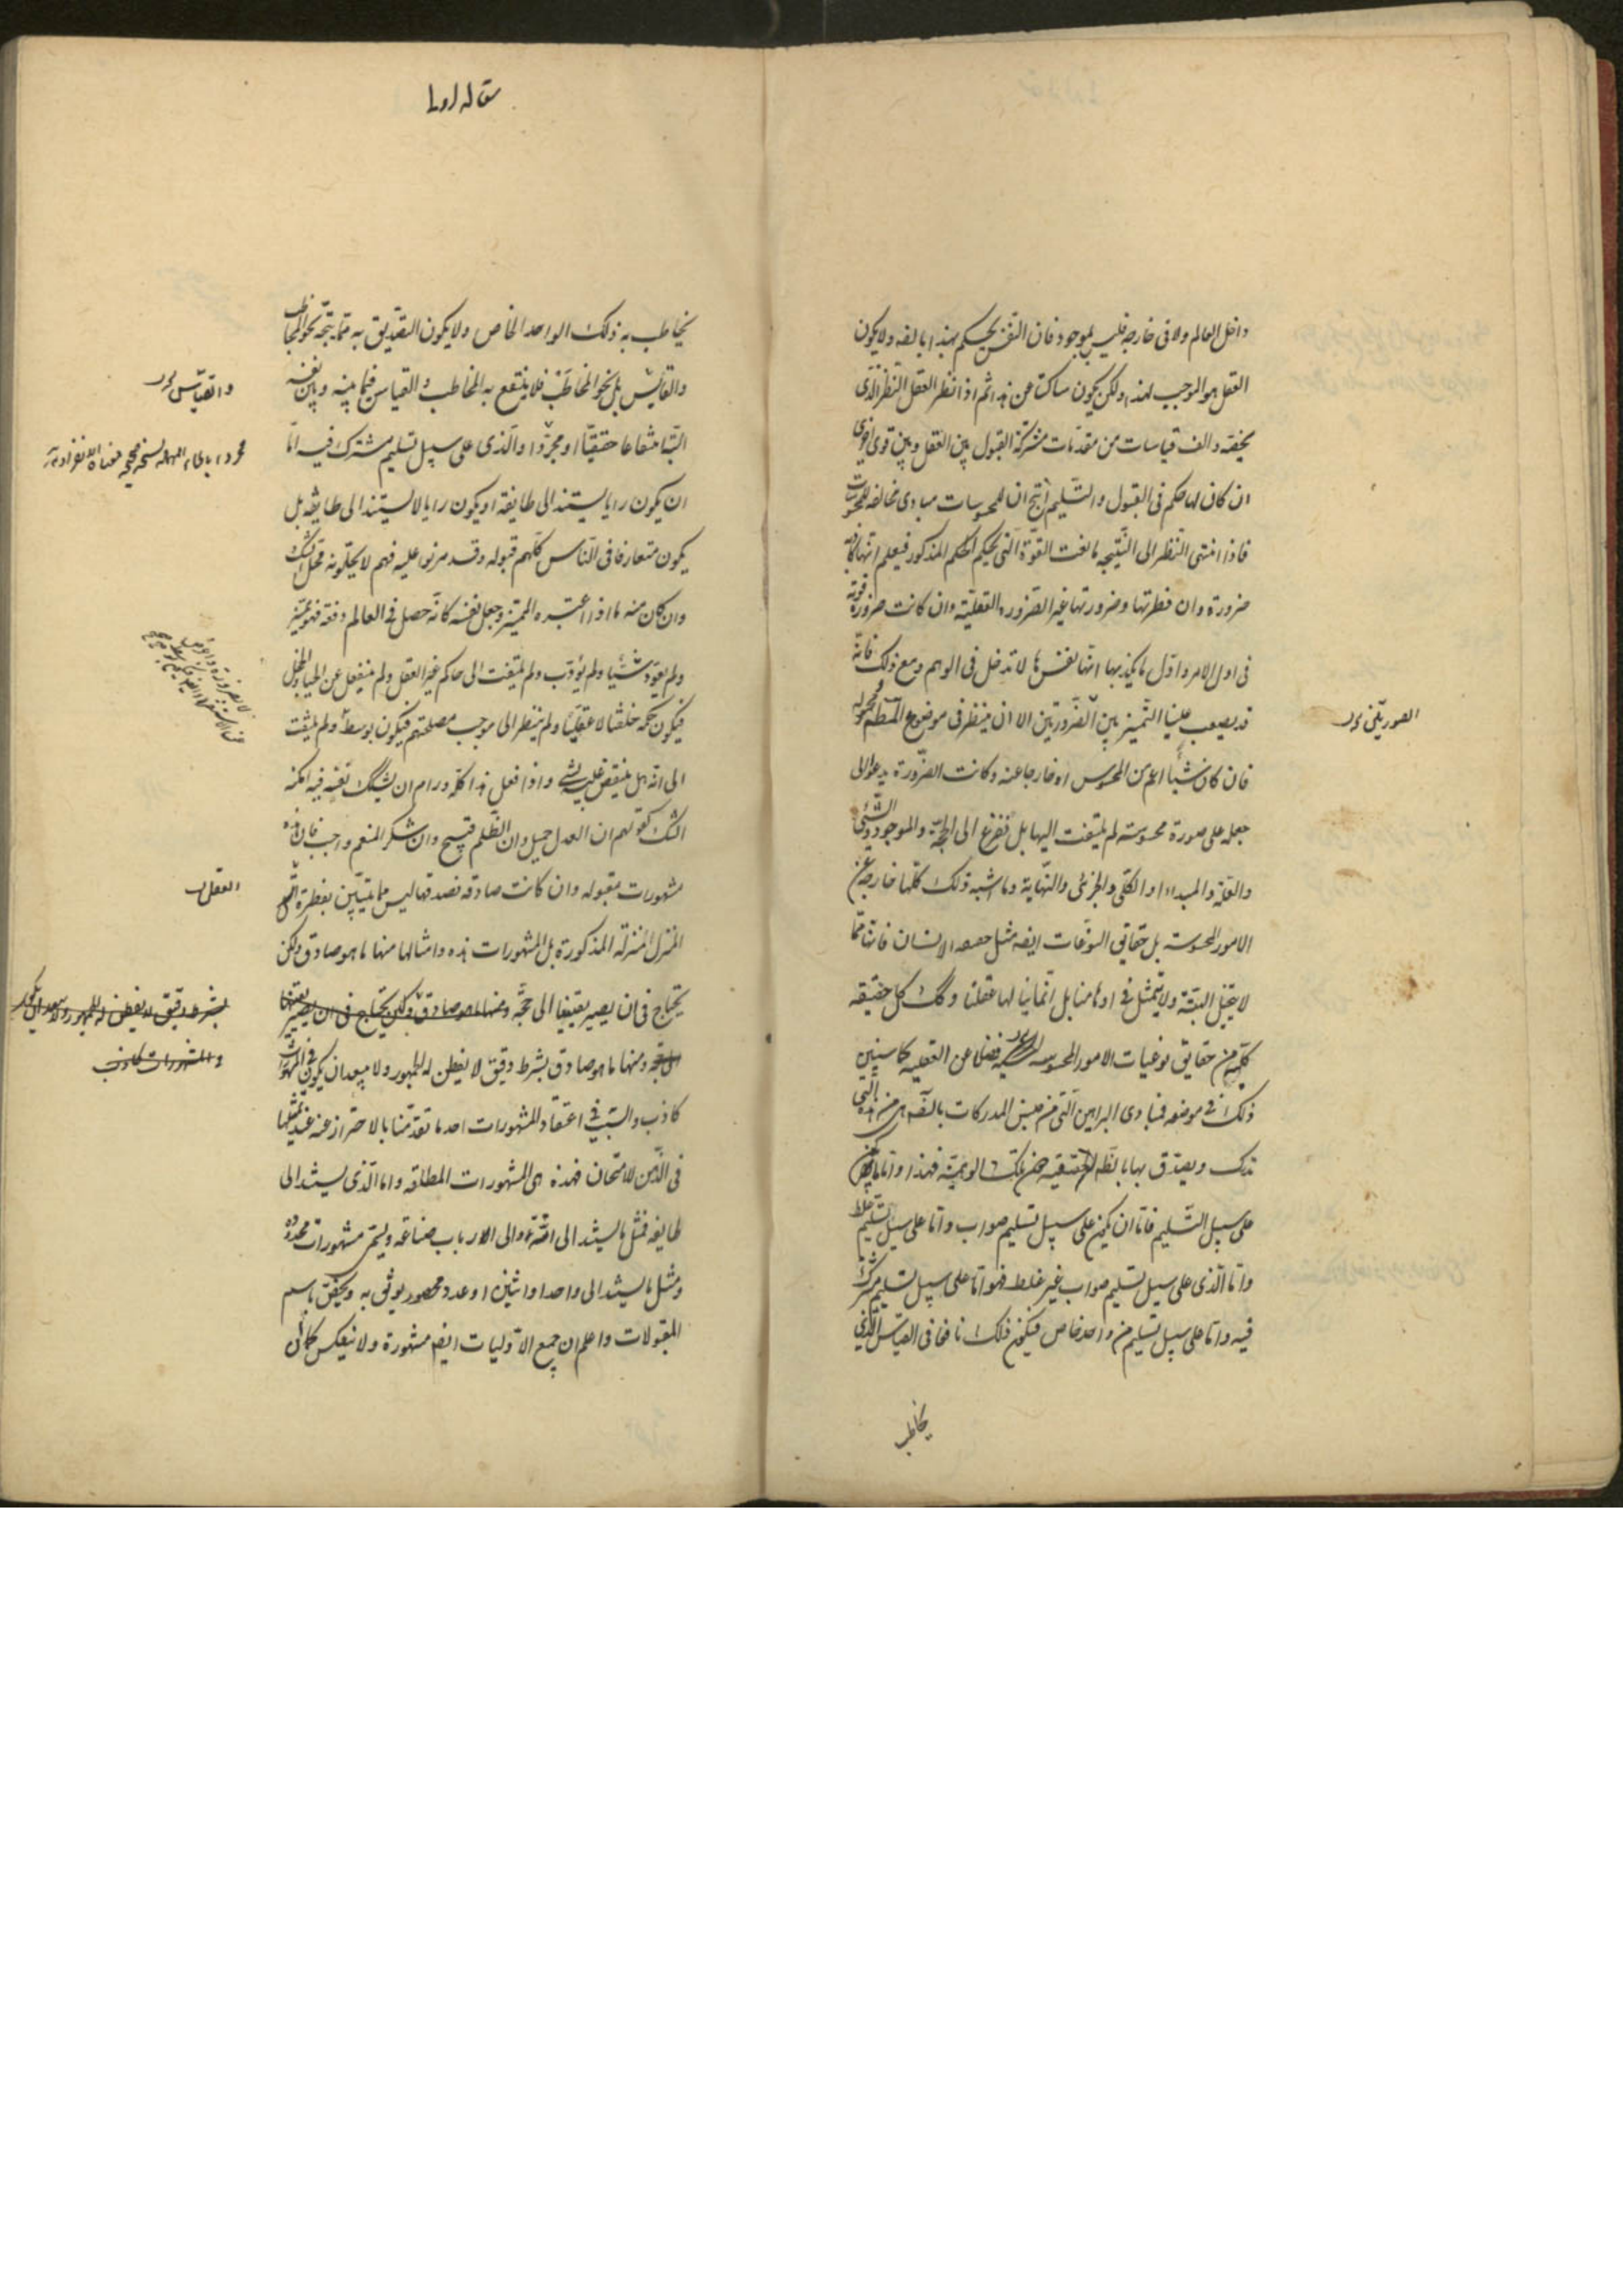 داخل العالم ولا فى خارجه فليس بموجود فان النفس يحكم بهذا بالضه ولا يكون
العقل هو الموجب لهذا ولكن يكون ساكتا عن هذا ثم اذا نظر العقل النظر الذى
يخصه والف قياسات من مقدمات مشتركة القبول بين العقل وبين قوى اخرى
ان كان لها حكم فى القبول والتسليم انتج ان للمحسوسات مبادى مخالفه للمحسوسات
فاذا انتهى النظر الى النتيجه مانعت القوة التى تحكم الحكم المذكور فيعلم انها كاذبة
ضرورة وان فطرتها وضرورتها غير الضروره العقلية وان كانت ضرورة قوية
فى اول الامر واول ما يكذبها انها نفسها لا تدخل فى الوهم ومع ذلك فانه
قد يصعب علينا التميز بين الضرورتين الا ان ينظر فى موضوع المط ومحموله
فان كان شيأ اعم من المحسوس او خارجا عنه وكانت الضرورة يدعو الى
جعله على صورة محسوسته لم يلتفت اليها بل نفزع الى الحجة والموجود والشئ
والعلة والمبداء والكلى والجزئى والنهاية وما اشبه ذلك كلها خارجة عن
الامور المحسوسته بل حقايق النوعيات ايضه مثل حقيقه الانسان فانها مما
لا يتخيل البتة ولا يتمثل فى اوهامنا بل انما ينالها عقلنا وكك كل حقيقه
كلية من حقايق نوعيات الامور المحسوسه فضلا عن العقليه كما سنبين
ذلك فى موضعه فمبادى البراهين التى من جنس المدركات بالضه هى من هذه التى
تدرك ويصدق بها بالضه الحقيقيه دون تلك الوهمية فهذا واما ما يكون
على سبيل التسليم فاما ان يكون على سبيل تسليم صواب واما على سبيل تسليم غلط
واما الذى على سبيل تسليم صواب غير غلط فهو اما على سبيل تسليم مشترك
فيه واما على سبيل تسليم من واحد خاص فيكون ذلك نافعا فى القياس الذى
يخاطب
مقاله اولى
يخاطب به ذلك الواحد الخاص ولا يكون التصديق به مما يتجه نحو المخاطب
والقايس بل نحو المخاطب فلا ينتفع به المخاطب فى القياس فيما بينه وبين نفسه
انتفاعا حقيقيا او مجردا والذى على سبيل تسليم مشترك فيه اما
ان يكون رايا يستند الى طايفة او يكون رايا لا يستند الى طايفه بل
يكون متعارفا فى الناس كلهم قبوله وقد مرنوا عليه فهم لا يحلونه محل الشك
وان كان منه ما اذا اعتبره المميز وجعل نفسه كانه حصل فى العالم دفعة فهو يميز
ولم يعود شيئا ولم يؤدب ولم يلتفت الى حاكم غير العقل ولم ينفعل عن الحيا والخجل
فيكون حكمه خلقيا لا عقليا ولم ينظر الى موجب مصلحتهم فيكون بوسط ولم يلتفت
الى انه هل ينقض عليه شئ واذا فعل هذا كله ورام ان يشكك نفسه فيه امكنه
الشك كقولهم ان العدل جميل وان الظلم قبيح وان شكر المنعم واجب فان هذه
مشهورات مقبوله وان كانت صادقه فصدقها ليس مما يتبين بفطرة
المنزل المنزلة المذكورة بل المشهورات هذه وامثالها منها ما هو صادق ولكن
يحتاج فى ان يصير يقينيا الى حجة ومنها ما هو صادق ولكن يحتاج فى ان يصير يقينيا
ومنها ما هو صادق بشرط دقيق لا يفطن له الجمهور ولا يبعد ان يكون فى المشهورات
كاذب والسبب فى اعتقاد المشهورات احد ما تقدمنا بالاحتراز عنه عند تمثلها
فى الذهن للامتحان فهذه هى المشهورات المطلقه واما الذى يستند الى
طايفه فمثل ما يستند الى امة والى ارباب صناعه ويسمى مشهورات محدودة
ومثل ما يستند الى واحد او اثنين او عدد محصور يوثق به ويخص باسم
المقبولات واعلم ان جميع الاوليات ايضه مشهورة ولا ينعكس كما ان
والقياس
العقل
بشرط دقيق لا يفطن له الجمهور ولا يبعد ان يكون
والمشهورات كاذب